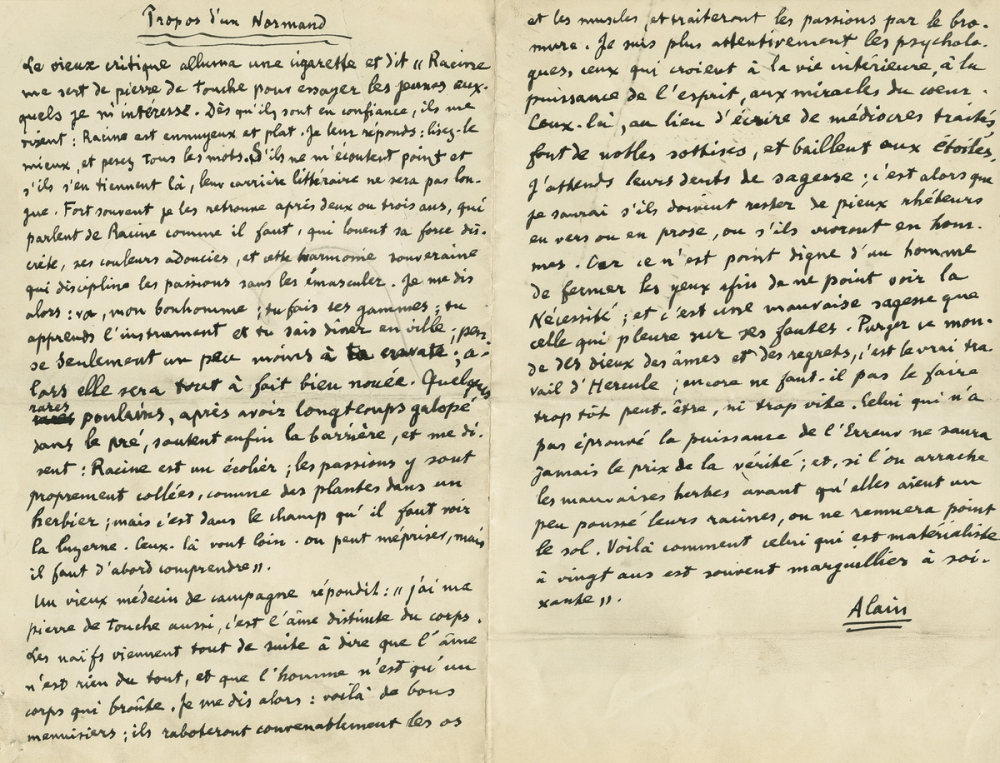 Propos d'un Normand
Le vieux critique alluma une cigarette et dit « Racine
me sert de pierre de touche pour essayer les jeunes aux-
quels je m'intéresse. Dès qu'ils sont en confiance, ils me
disent : Racine est ennuyeux et plat. Je leur réponds : lisez-le
mieux, et pesez tous les mots. S'ils ne m'écoutent point et
s'ils s'en tiennent là, leur carrière littéraire ne sera pas lon-
gue. Fort souvent je les retrouve après deux ou trois ans, qui
parlent de Racine comme il faut, qui louent sa force dis-
crète, ses couleurs adoucies, et cette harmonie souveraine
qui discipline les passions sans les émasculer. Je me dis
alors : va, mon bonhomme ; tu fais tes gammes ; tu
apprends l'instrument et tu sais dîner en ville ; pen-
se seulement un peu moins à ta cravate ; a-
lors elle sera tout à fait bien nouée. Quelques
rares poulains, après avoir longtemps galopé
dans le pré, sautent enfin la barrière, et me di-
sent : Racine est un écolier ; les passions y sont
proprement collées, comme des plantes dans un
herbier ; mais c'est dans le champ qu'il faut voir
la luzerne. Ceux-là vont loin. On peut mépriser, mais
il faut d'abord comprendre ».
Un vieux médecin de campagne répondit : « j'ai ma
pierre de touche aussi, c'est l'âme distincte du corps.
Les naïfs viennent tout de suite à dire que l'âme
n'est rien du tout, et que l'homme n'est qu'un
corps qui broûte. Je me dis alors : voilà de bons
menuisiers ; ils raboteront convenablement les os
et les muscles, et traiteront les passions par le bro-
mure. Je suis plus attentivement les psycholo-
gues, ceux qui croient à la vie intérieure, à la
puissance de l'esprit, aux miracles du coeur.
Ceux-là, au lieu d'écrire de médiocres traités
font de nobles sottises, et baillent aux étoiles,
J'attends leurs dents de sagesse ; c'est alors que
je saurai s'ils doivent rester de pieux rhéteurs
en vers ou en prose, ou s'ils vivront en hom-
mes. Car ce n'est point digne d'un homme
de fermer les yeux afin de ne point voir la
Nécessité ; et c'est une mauvaise sagesse que
celle qui pleure sur ses fautes. Purger ce mon-
de des dieux des âmes et des regrets, c'est le vrai tra-
vail d'Hercule ; encore ne faut-il pas le faire
trop tôt peut-être, ni trop vite. Celui qui n'a
pas éprouvé la puissance de l'Erreur ne saura
jamais le prix de la vérité ; et, si l'on arrache
les mauvaises herbes avant qu'elles aient un
peu poussé leurs racines, on ne remuera point
le sol. Voilà comment celui qui est matérialiste
à vingt ans est souvent marguillier à soi-
xante ».
Alain